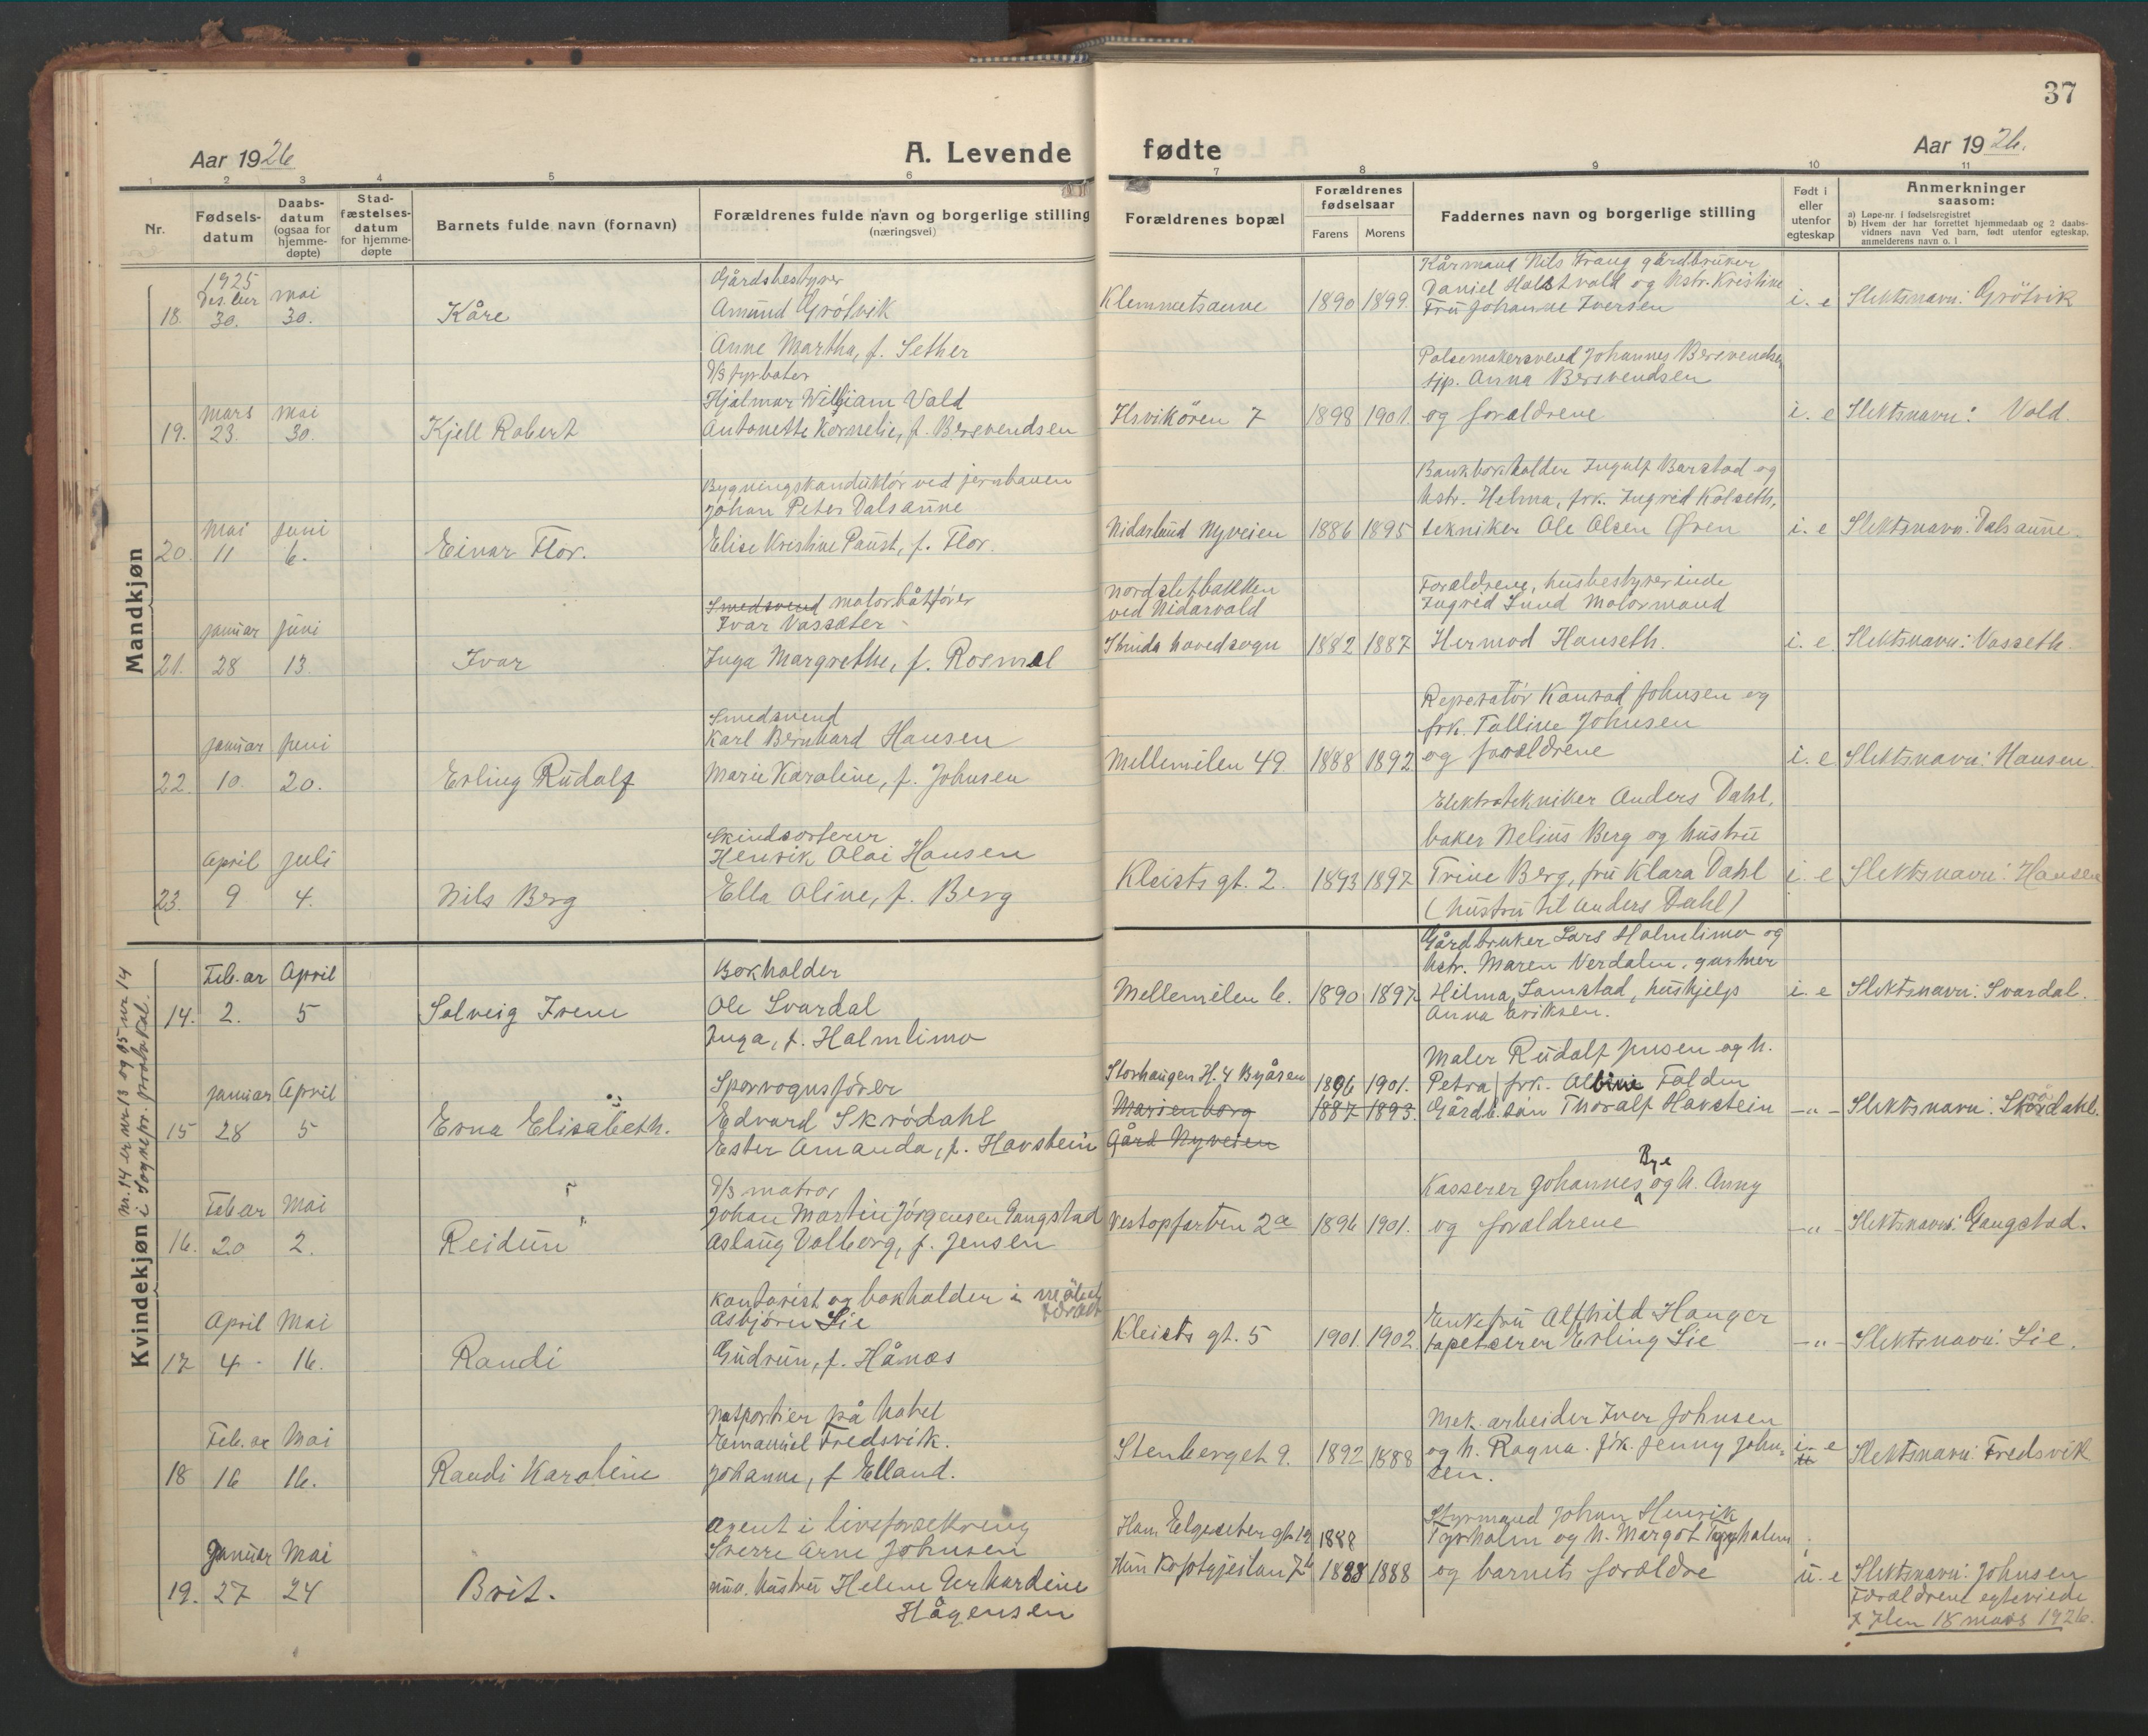 37
Aar 1926
A. Levende
fødte
Aar 1926.
1 2 3 4 5 6 7 8 9 10 11
Nr.
Fødsels-
datum
Daabs-
datum
(ogsaa for
hjemme-
døpte)
Stad-
fæstelses-
datum
for hjemme-
døpte
Barnets fulde navn (fornavn)
Forældrenes fulde navn og borgerlige stilling
(næringsvei)
Forældrenes bopæl
Forældrenes
fødselsaar
Farens Morens
Faddernes navn og borgerlige stilling
Født i
eller
utenfor
egteskap
Anmerkninger
saasom:
a) Løpe-nr. i fødselsregistret
b) Hvem der har forrettet hjemmedaab og 2 daabs-
vidners navn Ved barn, født utenfor egteskap,
anmelderens navn o. l
Mandkjøn
1925
Des.ber mai
18. 30. 30.
Kåre
Gårdsbestyrer
Amund Grötvik
Anne Martha, f. Sether
Klemmetsaune
1890 1899.
Kårmand Nils Trang gårdbruker
Daniel Halstvald og hstr. Kristine
Fru Johanne Iversen
i. e
Slektsnavn: Grötvik
mars mai
19. 23. 30.
Kjell Robert
D/S fyrböter
Hjalmar William Vald
Antonette Kornelie, f. Bersvendsen
Ilsvikören 7
1898 1901.
Pølsemakersvend Johannes Bersvendsen
sjp. Anna Bersvendsen
og forældrene
i. e
Slektsnavn: Vald.
Mai Juni
20. 11 6.
Einar Flor.
Bygningskonduktör ved jernbanen
Johan Peter Dalsaune
Elise Kristine Paust, f. Flor.
Nidarlund Nyveien
1886 1895
Bankbokholder Ingulf Barstad og
hstr. Helma, frk. Ingrid Kolseth,
tekniker Ole Olsen Øren
i. e
Slektsnavn: Dalsaune.
januar juni
21. 28 13.
Ivar
Smedsvend motorbåtförer
Ivar Vassæter
Inga Margrethe, f. Rosmæl
Nordsletbakken
ved Nidarvold
Strinda hovedsogn
1882 1887
Forældrene, husbestyrerinde
Ingrid Lund Motormand
Hermod Hanseth.
i. e.
Slektsnavn: Vasseth.
januar juni
22. 10. 20.
Erling Rudolf
Smedsvend
Karl Bernhard Hansen
Marie Karoline, f. Johnsen
Mellemilen 49
1888 1892
Reperatör Konrad Johnsen og
frk. Talline Johnsen
og forældrene
i. e
Slektsnavn: Hansen.
April juli
23. 9 4.
Nils Berg
Skindsorterer
Henrik Olai Hansen
Ella Oline, f. Berg
Kleists gt. 2.
1893 1897
Elektrotekniker Anders Dahl,
baker Nelius Berg og hustru
Trine Berg, fru Klara Dahl
(hustru til Anders Dahl)
i. e
Slektsnavn: Hansen
Kvindekjøn
Nr. 14 er nr 13 og 15 nr 14
i Sognepr. protokol.
Feb.ar April
14. 2. 5
Solveig Irene
Bokholder
Ole Svardal
Inga, f. Halmlimo
Mellemilen 6.
1890 1897
Gårdbruker Lars Halmlimo og
hstr. Maren Verdalen, gartner
Hilma Lamstad, hushjelp
Anna Eriksen.
i. e
Slektsnavn: Svardal.
januar April
15 28 5
Erna Elisabeth.
Sporvognsförer
Edvard Skrödahl
Ester Amanda, f. Havstein
Storhaugen H. 4 Byåsen
Marienborg
Gård Nyveien
1896 1901.
1887 1893.
Maler Rudolf Jusen og h.
Petra, frk. Albine Folden
Gårdb.sön Thoralf Havstein
-"-
Slektsnavn: Skrödahl.
Feb.ar Mai
16. 20 2.
Reidun
D/S matros
Johan Martin Jörgensen Gangstad
Aslaug Valborg, f. Jensen
Vestopfarten 2a
1896 1901.
Bye
Kasserer Johannes og h. Anny
og forældrene
-"-
Slektsnavn: Gangstad.
April Mai
17 4 16.
Randi
Kontorist og bokholder i
Asbjörn Lie
Gudrun, f. Hånæs
Kleists gt. 5
1901. 1902.
Enkefru Alfhild Hauger
tapetserer Erling Lie
-"-
Slektsnavn: Lie.
Feb.ar Mai
18 16 16.
Randi Karoline
Natportier på hotel
Emanuel Fredsvik.
Johanne, f Elland.
Stenberget 9.
1892 1888
Mek. arbeider Iver Johnsen
og h. Ragna. frk. Jenny John-
sen.
i. e
Slektsnavn: Fredsvik
Januar Mai
19. 27 24
Brit.
Agent i livsforsekring
Sverre Arne Johnsen
nuv. hustru Helene Gerhardine
Hågensen
Ham Elgeseter gt. 12
Hun Kofotgjeilan 7b
1888
1888 1888
Styrmand Johan Henrik
Tyrholm og h. Margot Tyrholm
og barnets forældre
u. e
Slektsnavn: Johnsen
Forældrene egteviede
I Ilen 18 mars 1926.